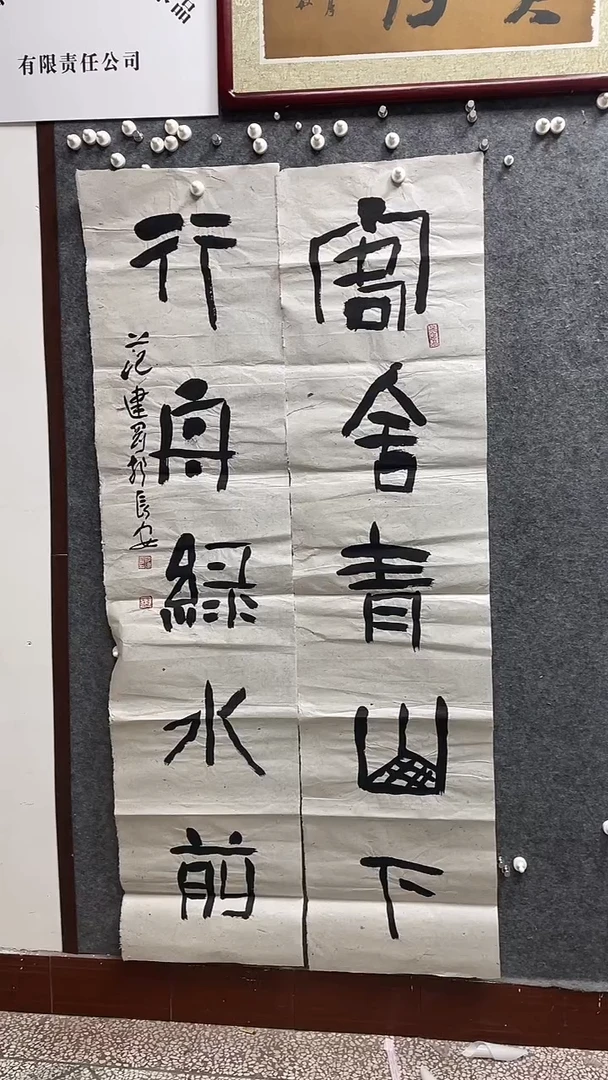 品
有限责任公司
客舍青山下
行舟綠水前
范建 於長安